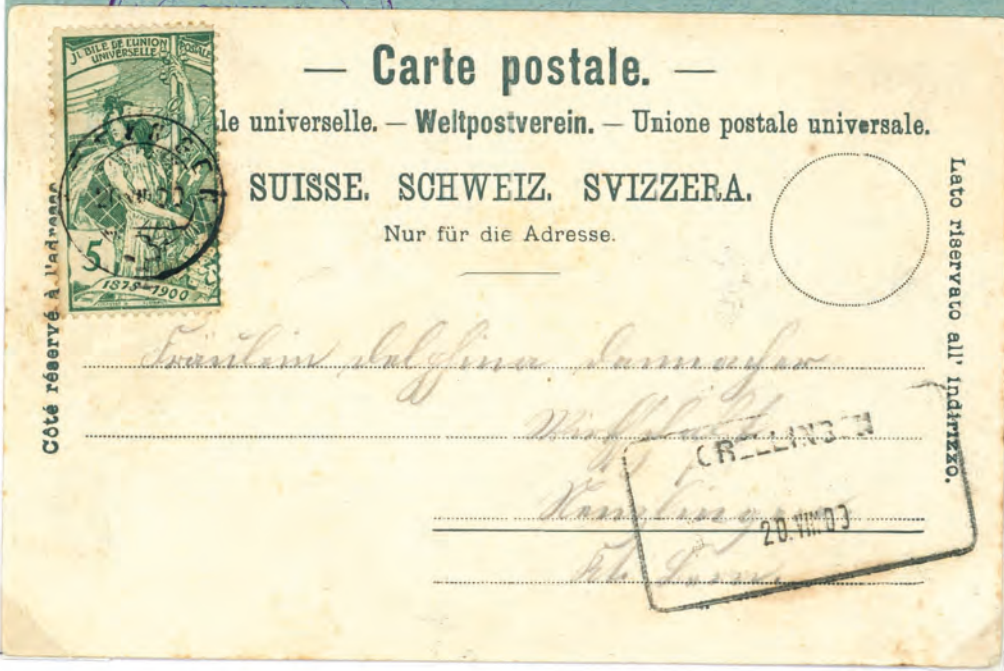 JUBILÉ DE L'UNION POSTALE
UNIVERSELLE
5
1875-1900
— Carte postale. —
le universelle. — Weltpostverein. — Unione postale universale.
SUISSE. SCHWEIZ. SVIZZERA.
Nur für die Adresse.
Côté réservé à l'adresse
Lato riservato all' indirizzo.
Fräulein Delphina
GRELLINGEN
20.VIII.00
Nenzlingen
Kt. Bern.